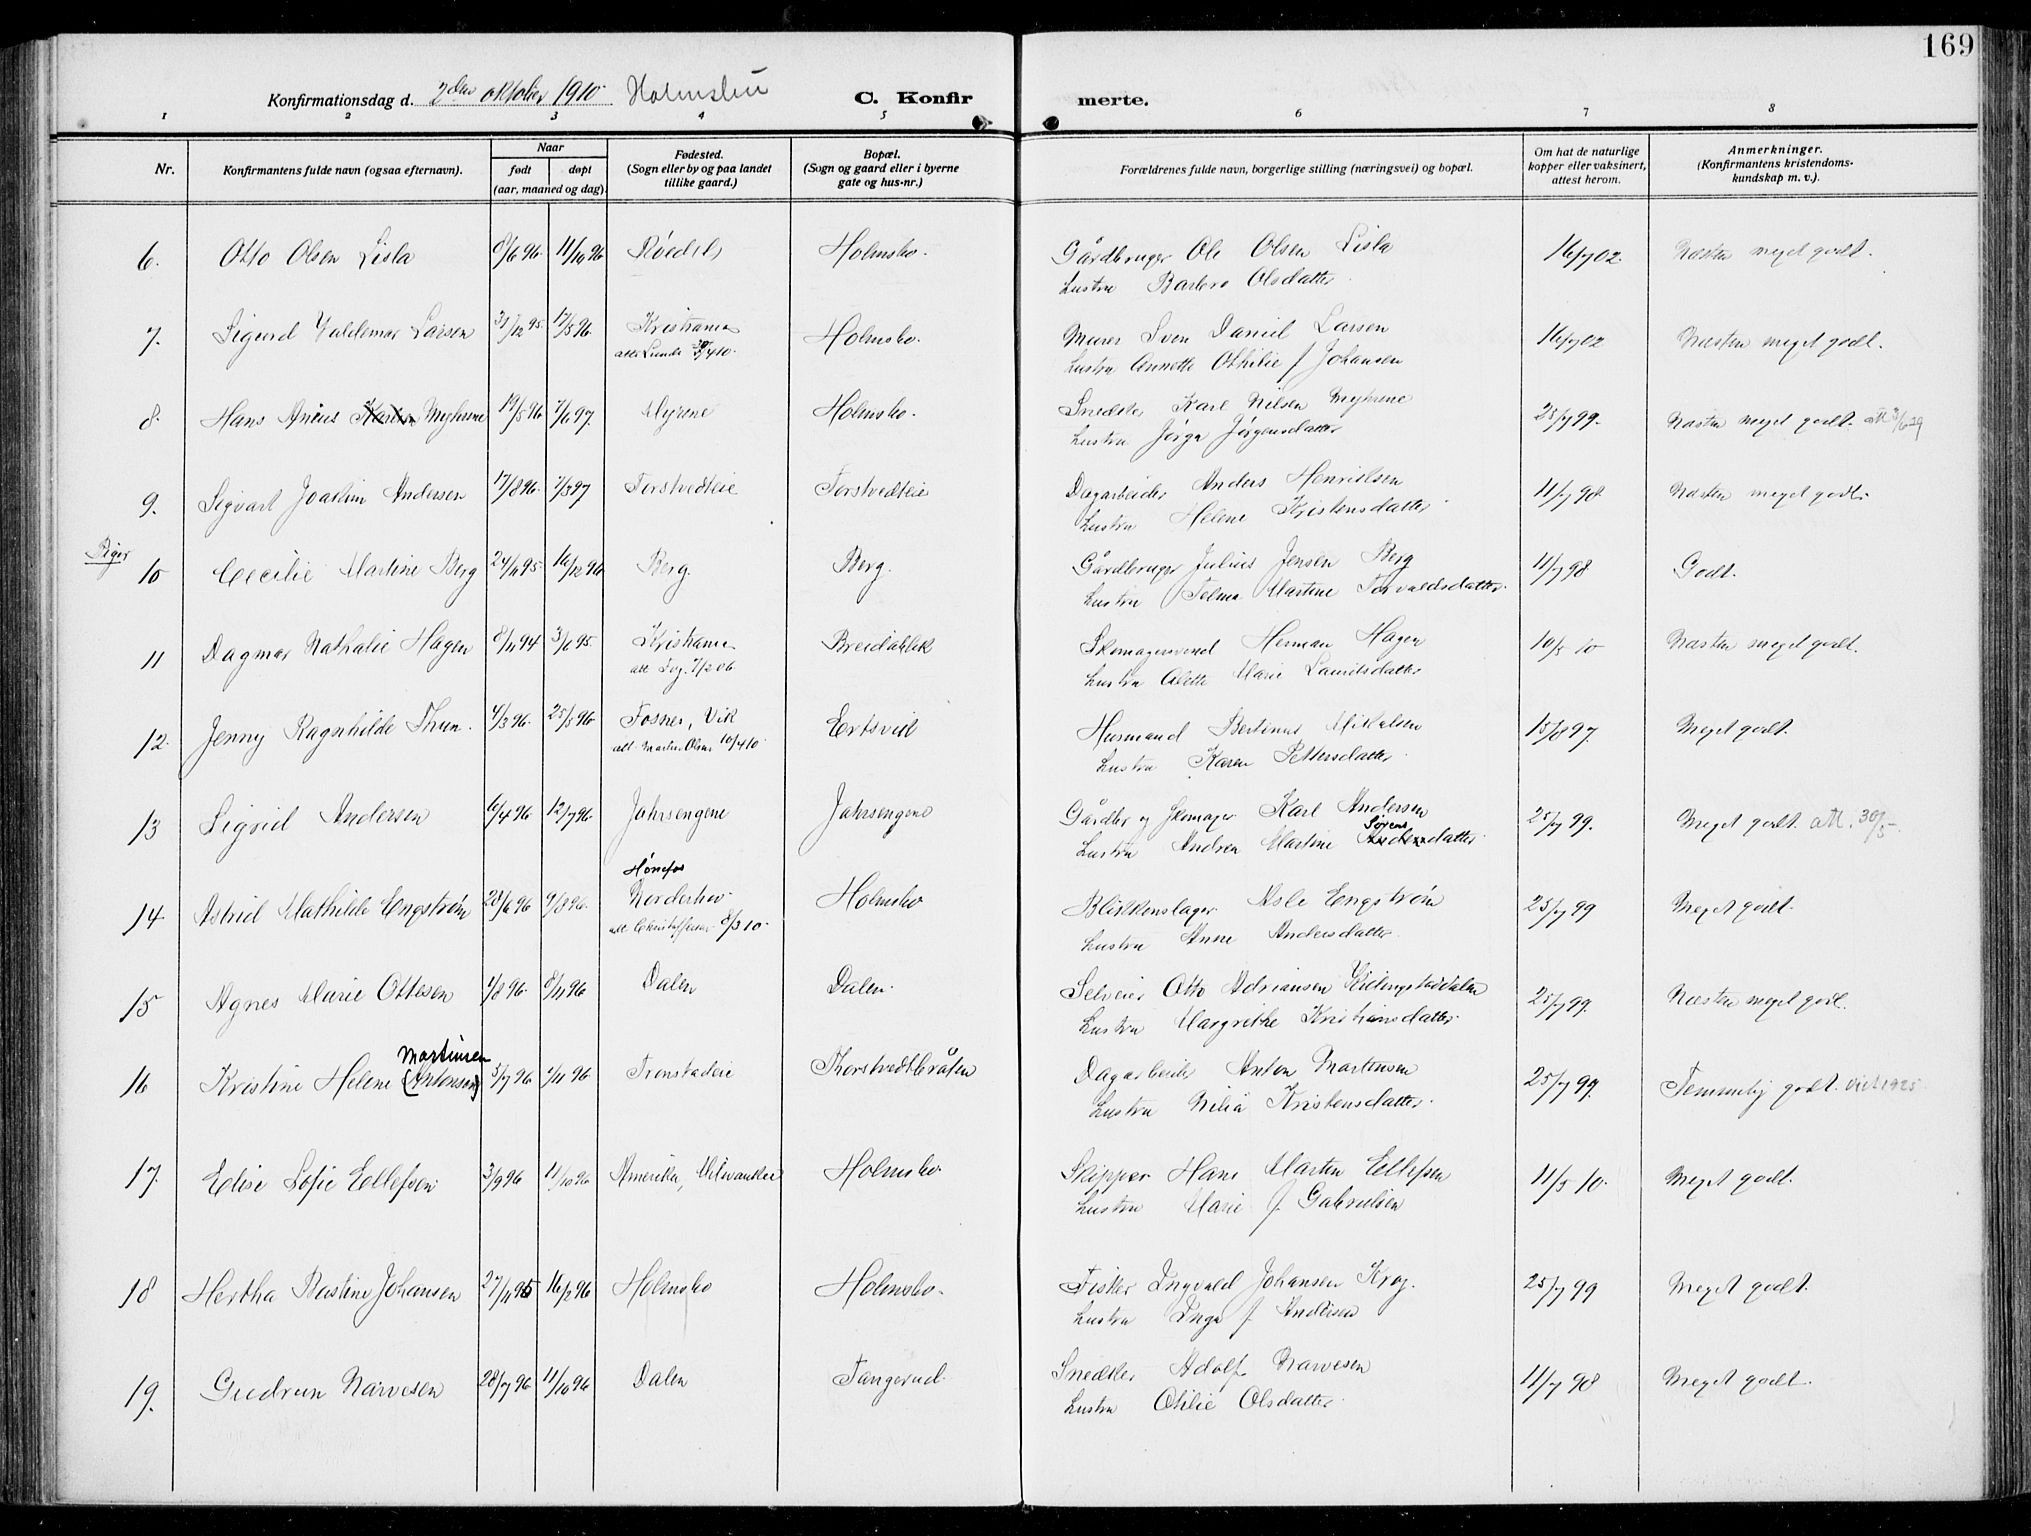 169
Konfirmationsdag d. 2den oktober 1910 Holmsbu C. Konfirmerte.
1 2 3 4 5 6 7 8
Nr. Konfirmantens fulde navn (ogsaa efternavn). Naar født døpt (aar, maaned og dag). Fødested. (Sogn eller by og paa landet tillike gaard.) Bopæl. (Sogn og gaard eller i byerne gate og hus-nr.) Forældrenes fulde navn, borgerlige stilling (næringsvei) og bopæl. Om hat de naturlige kopper eller vaksinert, attest herom. Anmerkninger. (Konfirmantens kristendomskundskap m. v.).
6. Otto Olsen Lisla 8/6 96. 11/10 96 Rødtel Holmsbo. Gårdbruger Ole Olsen Lisla 16/7 02. Næsten meget godt.
Hustru Barbro Olsdatter
7. Sigurd Valdemar Larsen 31/12 95. 17/5 96. Kristiania Holmsbo. Murer Sven Daniel Larsen 16/7 02 Næsten meget godt.
att Lunde 30/4 10. Hustru Annette Othilie f Johansen
8. Hans Anius Myhrene 19/5 96 7/6 97. Myrene Holmsbo. Snedker Karl Nilsen Myhrene 25/7 99. Næsten meget godt. att 3/6 29
Hustru Jørga Jørgensdatter
9. Sigvart Joakim Andersen 17/8 96. 7/3 97 Torstvedteie Torstvedteie Dagarbeider Anders Henriksen 11/7 98 Næsten meget godt.
Hustru Helene Kristensdatter
Piger
10 Cecilie Martine Berg 24/11 95. 16/12 96 Berg. Berg. Gårdbruger Julius Jensen Berg 11/7 98 Godt.
Hustru Telma Martine Torvaldsdatter.
11 Dagmar Nathalie Hagen 8/11 94 3/6 95. Kristiania Breidablik Skomagersvend Herman Hagen 10/5 10 Næsten meget godt.
att Fog. 7/2 06 Hustru Alette Marie Lauritsdatter
12. Jenny Ragnhilde Thun. 4/3 96. 25/5 96. Fosnes, Vik Ertsvik Husmand Bertinus Mikalsen 15/8 97. Meget godt.
att Martin Olsen 10/4 10. Hustru Karen Pettersdatter
13 Sigrid Andersen 6/4 96. 12/7 96 Jahrsengene Jahrsengene Gårdbr og skomager Karl Andersen 25/7 99. Meget godt. att. 30/5
Hustru Andrea Martine Sørensdatter
Hønefos
14 Astrid Mathilde Engstrøm 28/6 96 9/8 96. Norderhov Holmsbo Blikkenslager Asle Engstrøm 25/7 99 Meget godt.
att Christoffersen 8/3 10. Hustru Anne Andersdatter
15 Agnes Marie Ottesen 1/8 96. 8/11 96 Dalen Dalen. Selveier Otto Adriansen 25/7 99. Næsten meget godt.
Hustru Margrethe Kristiansdatter
16 Kristine Helene Martinsen (Antonsen) 5/7 96 1/11 96. Tronstadeie Thorstvedtbråten Dagarbeider Anton Martinsen 25/7 99. Temmelig godt. Viet 1925.
Hustru Nilia Kristensdatter.
17. Elise Sofie Ellefsen 3/9 96 11/10 96 Amerika, Milwaukee Holmsbo. Skipper Hans Marten Ellefsen 11/5 10. Meget godt.
Hustru Marie f. Gabrielsen
18 Hertha Bastine Johansen 27/11 95 16/2 96 Holmsbo Holmsbo. Fisker Ingvald Johansen Krog. 25/7 99 Meget godt.
Hustru Inga f. Andersen
19. Gudrun Narvesen 28/7 96 11/10 96 Dalen Tangerud. Snedker Adolf Narvesen 11/7 98 Meget godt.
Hustru Othlie Olsdatter.